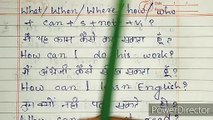 What/When/Where/how/who
+ can + s + not + v₁
मैं यह काम कैसे कर सकता हूँ?
How can I do this work?
मैं अंग्रेजी कैसे सकता हूँ?
How can I learn English?
क्यों नहीं सकते
Why can
PowerDirector